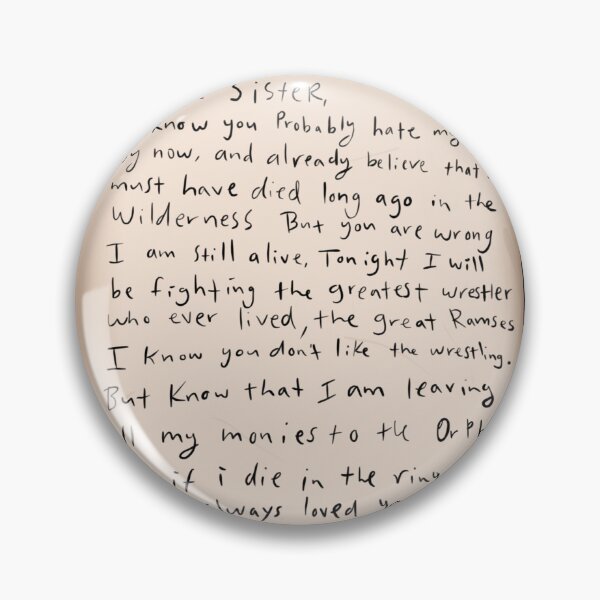 SisteR,
know you Probably hate my
by now, and already believe that
must have died long ago in the
Wilderness But you are wrong
I am still alive, Tonight I will
be fighting the greatest wrestler
who ever lived, the great Ramses
I know you don't like the wrestling.
But Know that I am leaving
my monies to the Orph
if i die in the ring
always loved